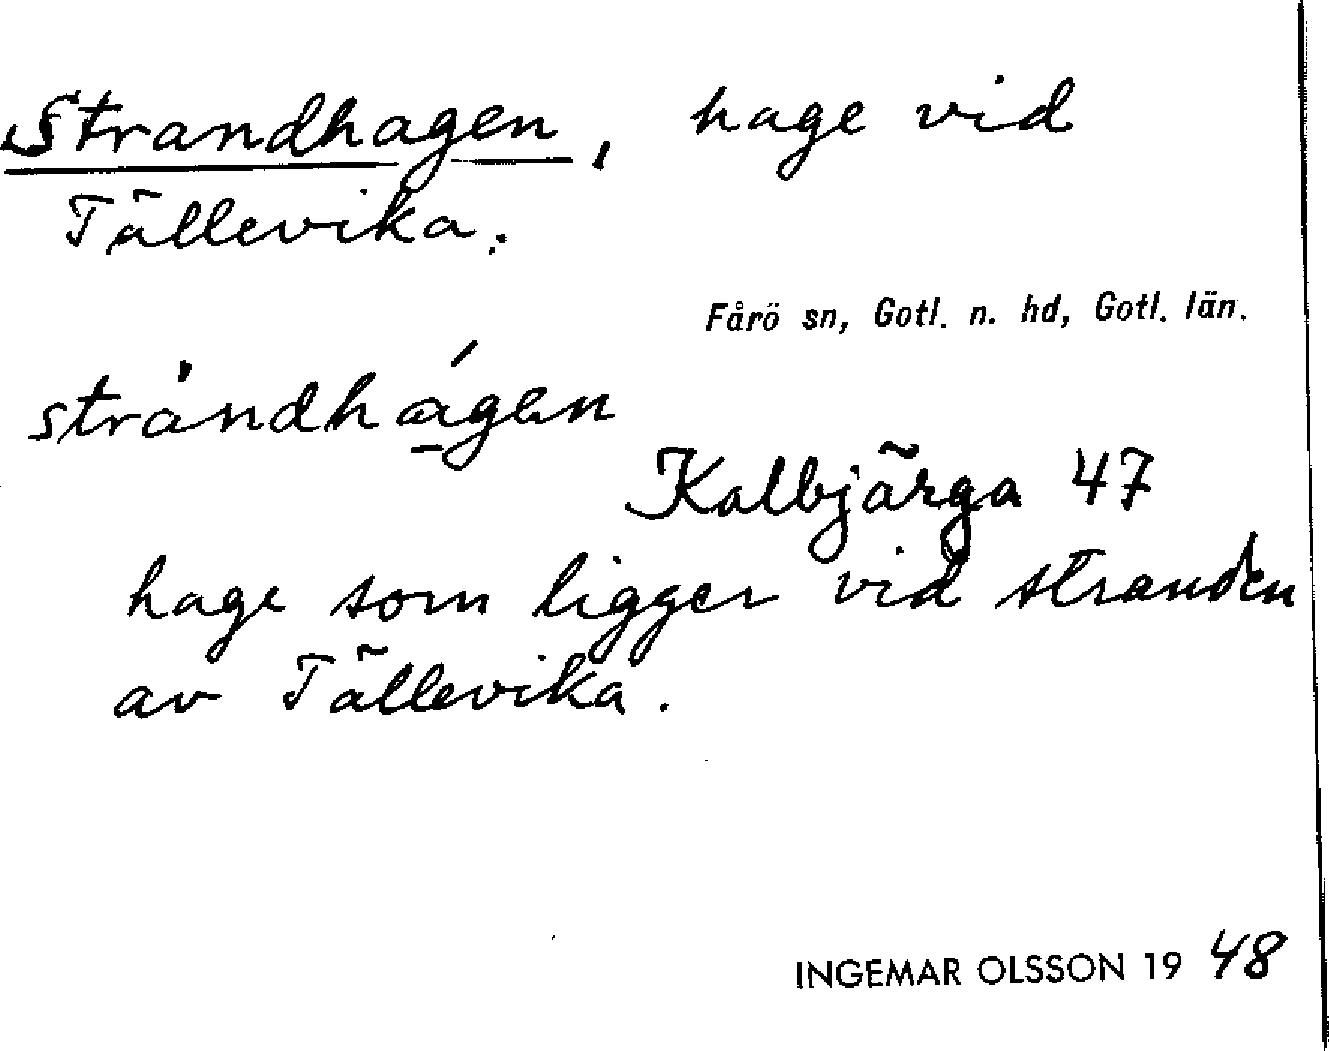 Strandhagen, hage vid
Tällevika.
Fårö sn, Gotl. n. hd, Gotl. län.
Kalbjärga 47
hage som ligger vid stranden
av Tällevika.
INGEMAR OLSSON 19 48